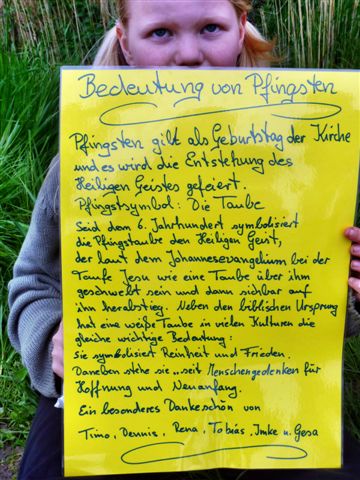 Bedeutung von Pfingsten
Pfingsten gilt als Geburtstag der Kirche
und es wird die Entstehung des
Heiligen Geistes gefeiert.
Pfingstsymbol: Die Taube
Seid dem 6. Jahrhundert symbolisiert
die Pfingstaube den Heiligen Geist,
der laut dem Johannesevangelium bei der
Taufe Jesu wie eine Taube über ihm
geschwebt sein und dann sichbar auf
ihn herabstieg. Neben den biblischen Ursprung
hat eine weiße Taube in vielen Kulturen die
gleiche wichtige Bedeutung:
Sie symbolisiert Reinheit und Frieden.
Daneben stehe sie ... seit Menschengedenken für
Hoffnung und Neuanfang.
Ein besonderes Dankeschön von
Timo, Dennis, Rena, Tobias, Imke u. Gesa